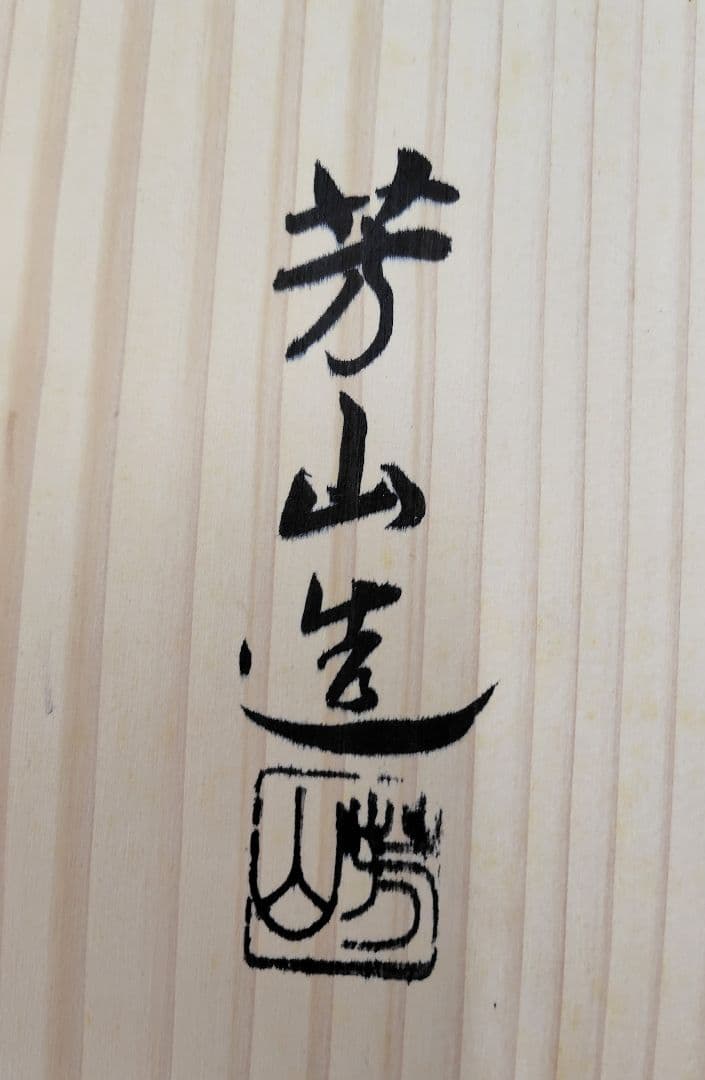 芳山造
芳山